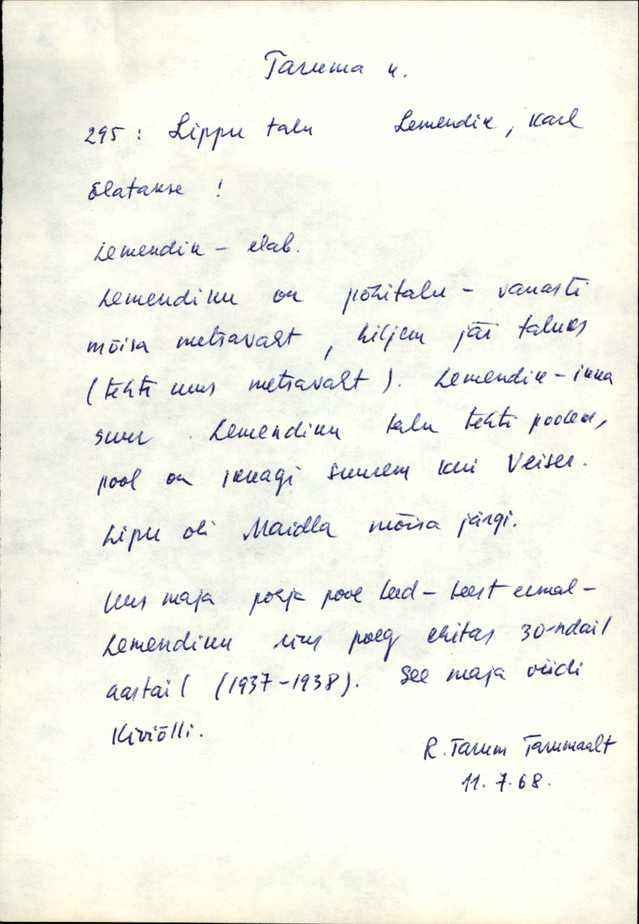 Taruma k.
295: Lippu talu Lemendik, Karl
Elatakse!
Lemendik - elab.
Lemendiku on põhitalu - vanasti
mõisa metsavaht, hiljem jäi taluks
(tehti uus metsavaht). Lemendik -
suur. Lemendiku talu tehti pooleks,
pool on ikkagi suurem kui Veiser.
Lipu oli Maidla mõisa järgi.
Uus maja põhja pool teed - teest eemal -
Lemendiku poeg ehitas 30-ndail
aastail (1937-1938). See maja viidi
Kiviõlli.
R. Tarum Tarumaalt
11.7.68.